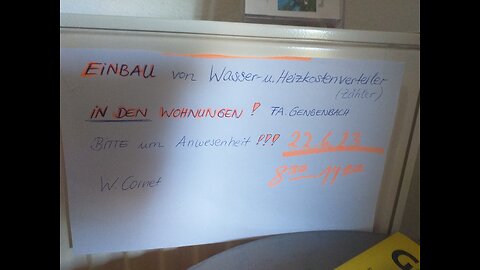 EINBAU von Wasser- u. Heizkostenverteiler
(Zähler)
IN DEN WOHNUNGEN! FA. GENGENBACH
BITTE um Anwesenheit!!! 22.6.23
8⁰⁰ - 11⁰⁰
W. Cornet
G